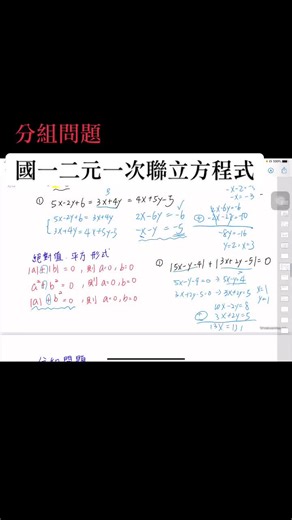 分組問題
國一二元一次聯立方程式
① 5x-2y+6 = 3x+4y = 4x+5y-3
{ 5x-2y+6 = 3x+4y
3x+4y = 4x+5y-3
2x-6y = -6
-x-y = -5
-8y = -16
y=2, x=3
絕對值、平方 形式
|a|+|b| = 0, 則 a=0, b=0
a²+b² = 0, 則 a=0, b=0
|a|+b² = 0, 則 a=0, b=0
① |5x-y-4| + |3x+2y-5| = 0
5x-y-4=0 → 5x-y=4
3x+2y-5=0 → 3x+2y=5
x=1
y=1
10x-2y=8
+ 3x+2y=5